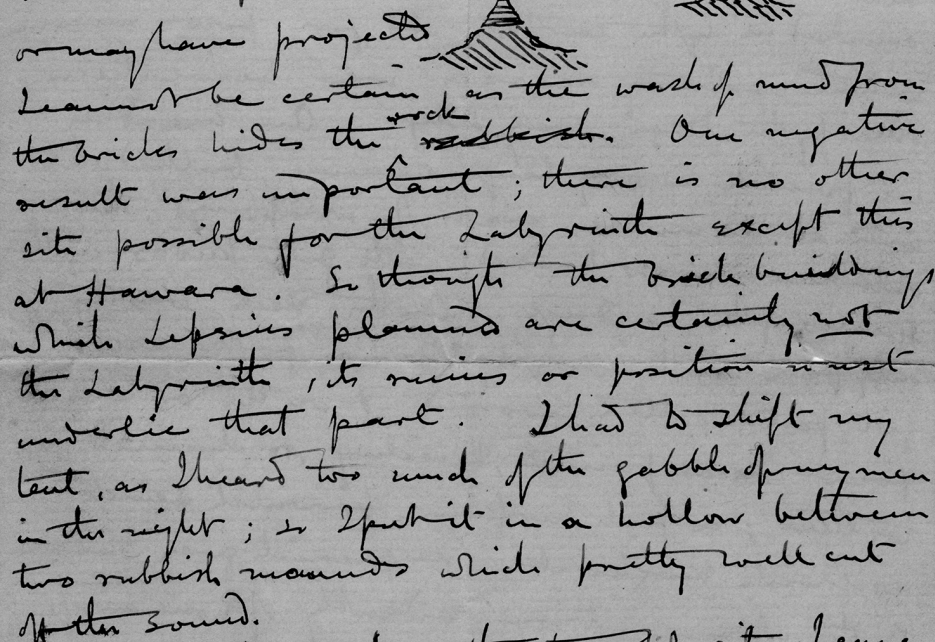 or may have projected
I cannot be certain, as the wash of mud from
the bricks hides the rock rubbish. One negative
result was important; there is no other
site possible for the Labyrinth except this
at Hawara. So though the brick buildings
which Lepsius planned are certainly not
the Labyrinth, its ruins or position must
underlie that part. I had to shift my
tent, as I heard too much of the gabble of my men
in the night; so I put it in a hollow between
two rubbish mounds which pretty well cut
off the sound.